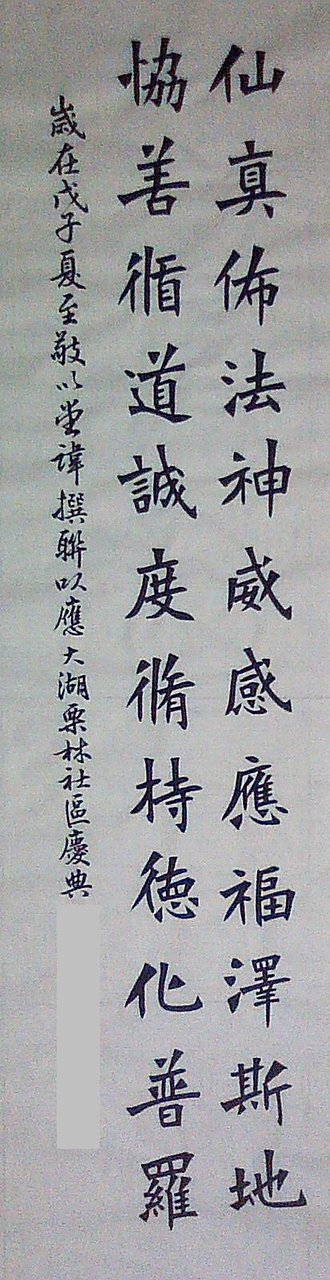 仙真佈法神威感應福澤斯地
恊善循道誠度脩持徳化普羅
歲在戊子夏至敬以堂諱撰聯以應大湖栗林社區慶典